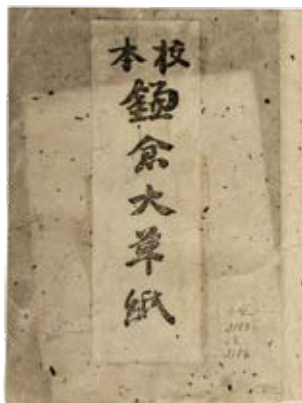 校本
鎌倉大草紙